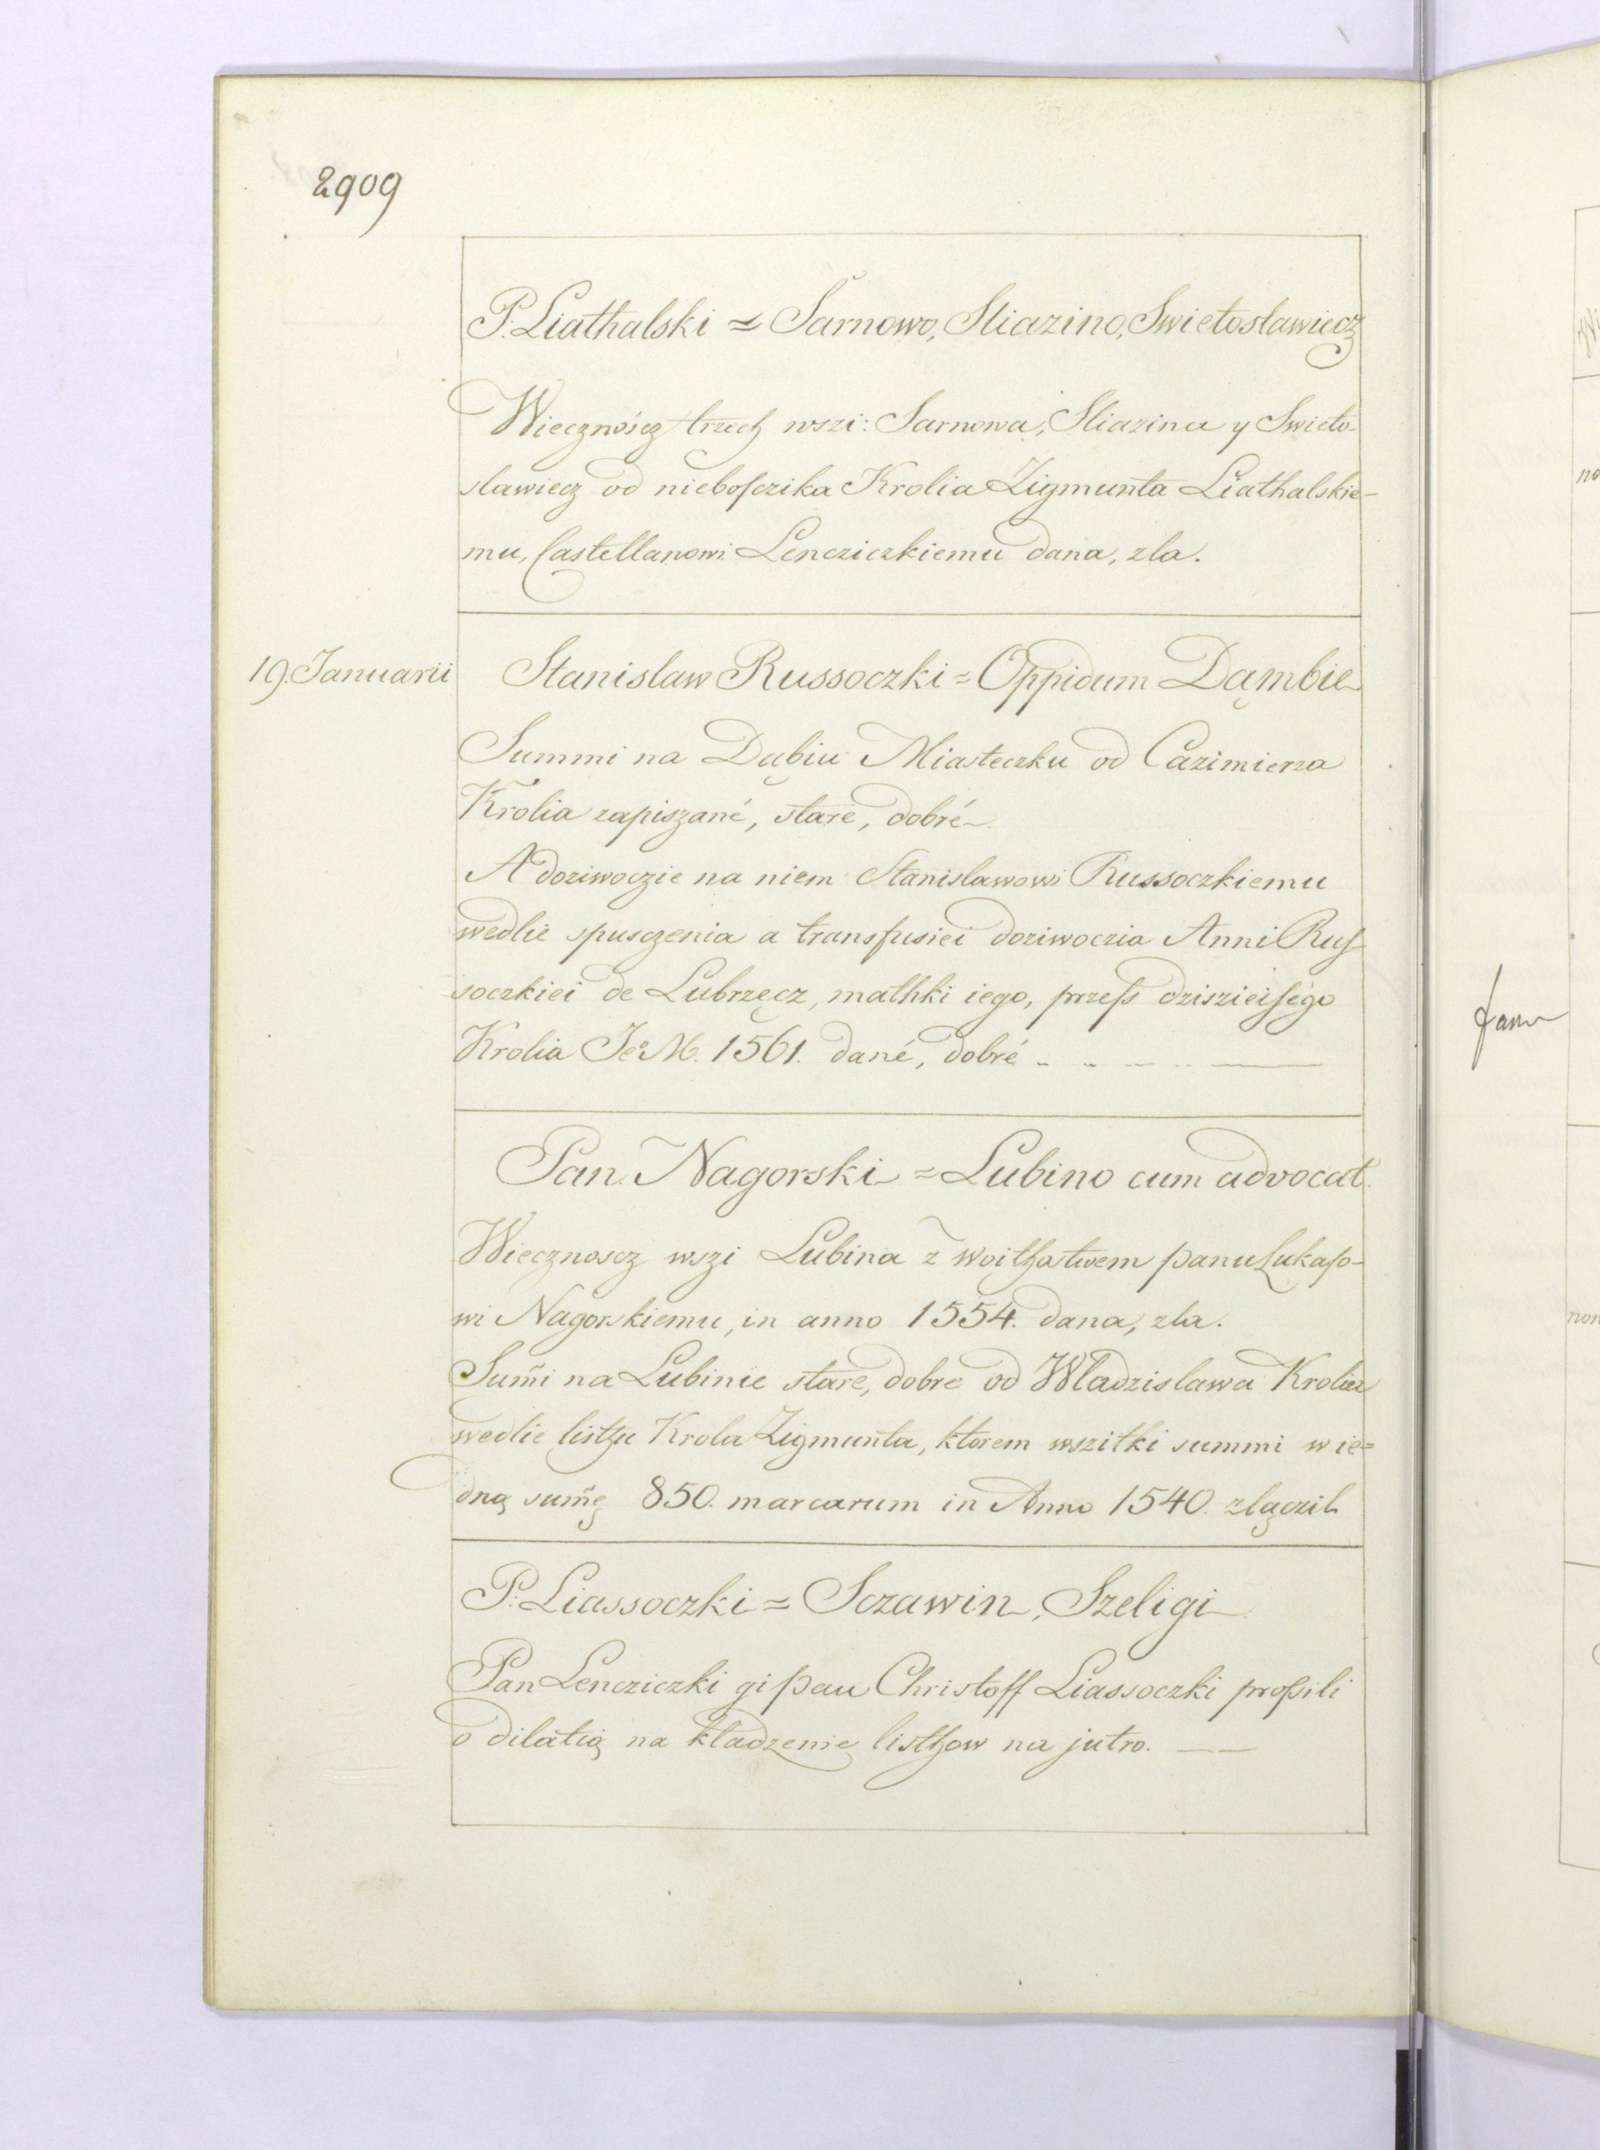 2909
P. Liathalski = Sarnowo, Sliazino, Swietoslawiecz
Wiecznoścz trzech wszi: Sarnowa, Sliazina y Swieto-
slawiecz od nieboſczika Krolia Zigmunta Liathalskie-
mu, Castellanowi Lencziczkiemu dana, zla.
19. Januarii
Stanislaw Russoczki = Oppidum Dąmbie
Summi na Dąbiu Miasteczku od Cazimierza
Krolia zapiszané, stare, dobré
A doziwoczie na niem Stanislawowi Russoczkiemu
wedlie spusczenia a transfusiei doziwoczia Anni Ruſ-
soczkiei de Lubrzęcz, mathki iego, przeſs dziszieiſego
Krolia Jeº M. 1561. dané, dobré
Pan Nagorski = Lubino cum advocat.
Wiecznoscz wszi Lubina z woithstwem panu Lukaſo-
wi Nagorskiemu, in anno 1554. dana, zla.
Sum̃i na Lubinie stare, dobre od Wladzislawa Krolia
wedlie listhu Krola Zigmunta, ktorem wszitki summi w ie=
dną sum̃ę 850. marcarum in Anno 1540. zlączil
P. Liassoczki = Sczawin, Szeligi
Pan Lencziczki gi pan Christoff Liassoczki proſsili
o dilatią na kladzenie listhow na jutro.
no
non